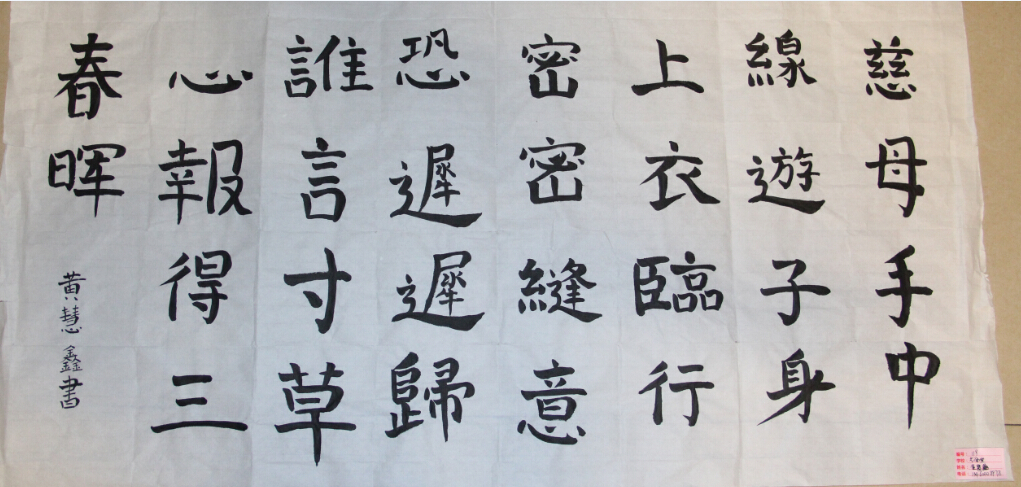 慈母手中
線遊子身
上衣臨行
密密縫意
恐遲遲歸
誰言寸草
心報得三
春暉
黄慧鑫書